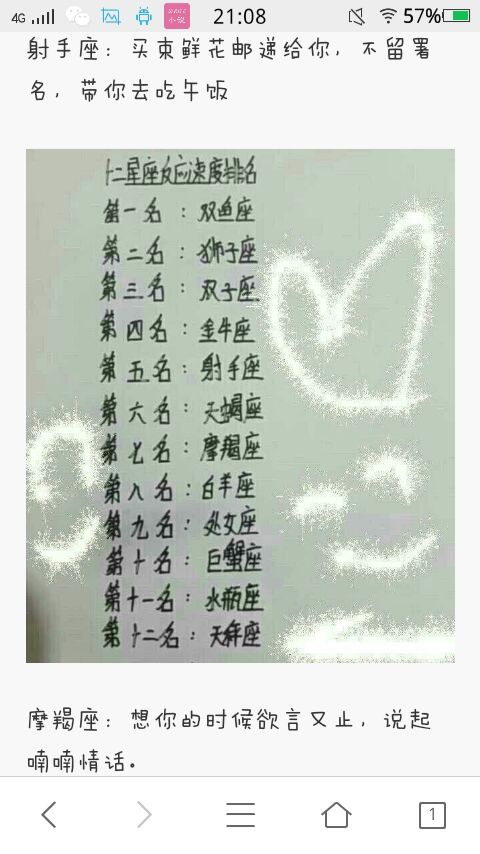 4G 21:08 57%
射手座：买束鲜花邮递给你，不留署
名，带你去吃午饭
十二星座反应速度排名
第一名：双鱼座
第二名：狮子座
第三名：双子座
第四名：金牛座
第五名：射手座
第六名：天蝎座
第七名：摩羯座
第八名：白羊座
第九名：处女座
第十名：巨蟹座
第十一名：水瓶座
第十二名：天秤座
摩羯座：想你的时候欲言又止，说起
喃喃情话。
1